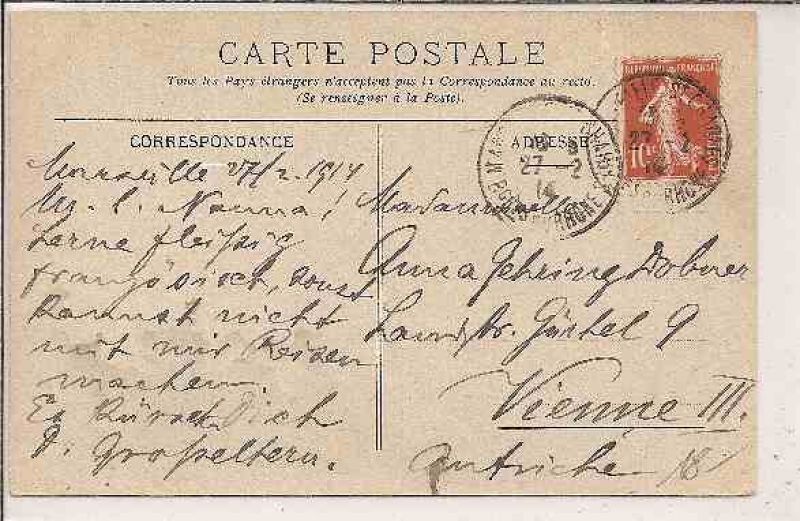 CARTE POSTALE
Tous les Pays étrangers n'acceptent pas la Correspondance au recto.
(Se renseigner à la Poste).
CORRESPONDANCE
Marseille 27/2. 1914
M. l. Nanna!
Lerne fleißig
französisch, sonst
kannst nicht
mit mir Reisen
machen.
Es Küsset Dich
D. Großeltern.
ADRESSE
Mademoiselle
Anna Jehring Dobner
Landstr. Gürtel 9
Vienne III.
Autriche
18
RÉPUBLIQUE FRANÇAISE
10
27 - 2
14
RHONE
27 - 2
14
RHONE